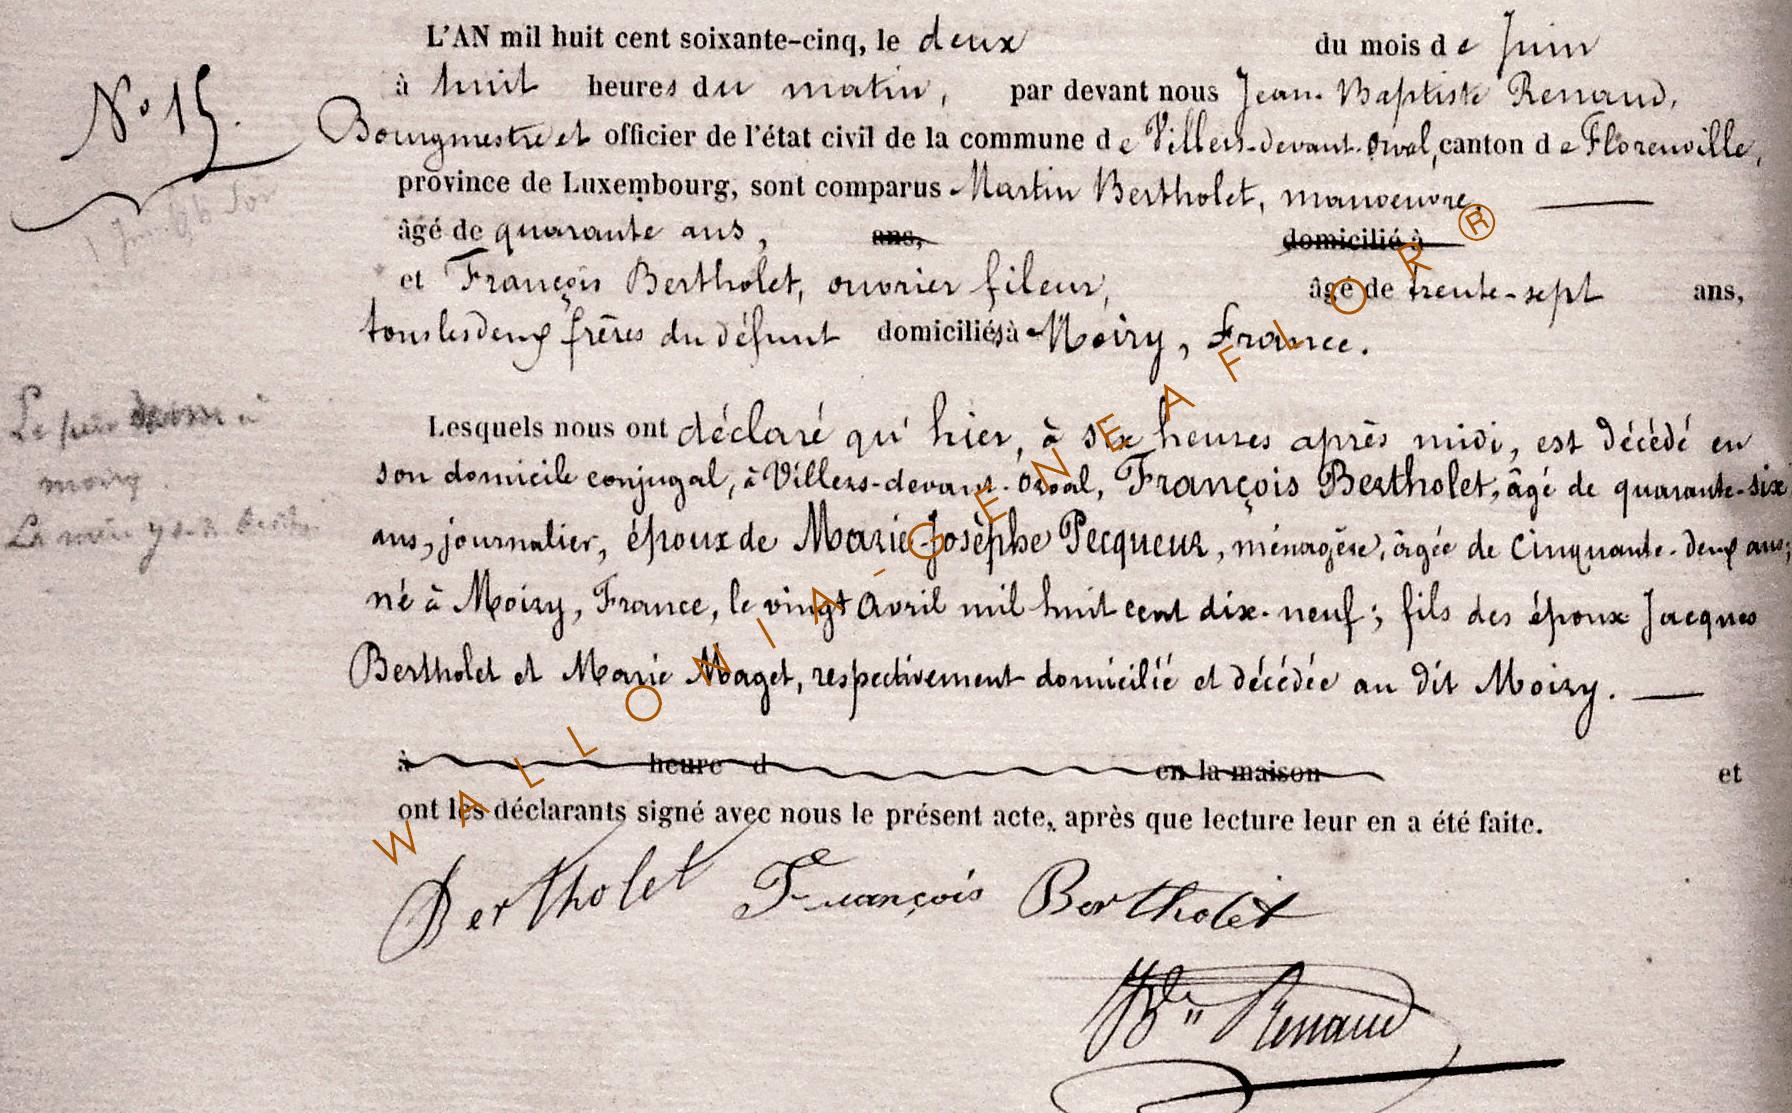 L'AN mil huit cent soixante-cinq, le deux du mois de Juin
N° 15.
à huit heures du matin, par devant nous Jean-Baptiste Renaud,
Bourgmestre et officier de l'état civil de la commune de Villers-devant-Orval, canton de Florenville,
province de Luxembourg, sont comparus Martin Bertholet, manoeuvre,
âgé de quarante ans, ans, domicilié à
et François Bertholet, ouvrier fileur, âgé de trente-sept ans,
tous les deux frères du défunt domiciliés à Moiry, France.
Lesquels nous ont déclaré qu'hier, à six heures après midi, est décédé en
son domicile conjugal, à Villers-devant-Orval, François Bertholet, âgé de quarante-six
ans, journalier, époux de Marie-Josèphe Pecqueur, ménagère, âgée de cinquante-deux ans;
né à Moiry, France, le vingt avril mil huit cent dix-neuf; fils des époux Jacques
Bertholet et Marie Maget, respectivement domicilié et décédée au dit Moiry.
à heure d en la maison et
ont les déclarants signé avec nous le présent acte, après que lecture leur en a été faite.
Bertholet François Bertholet
Renaud
Le père à
moiry.
La mère
WALLONIA-GENEAFLOR®